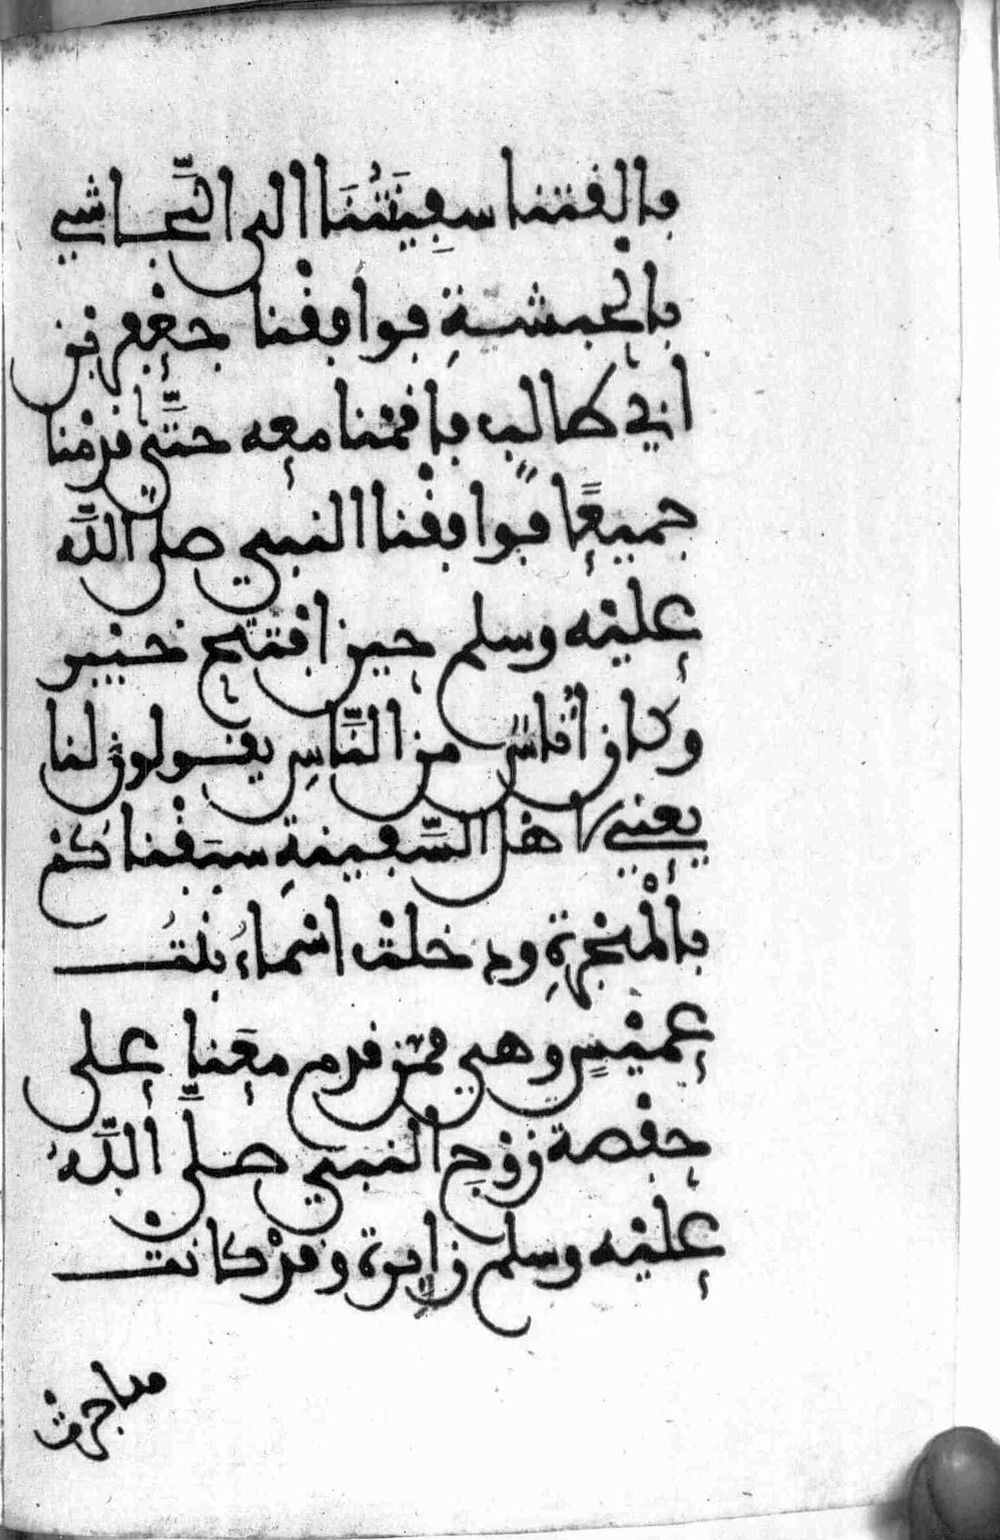 فألقتنا سفِينَتُنَا الى النَّجاشي
بالحبشةِ فوافقْنا جعْفر بن
ابي طالبٍ فأقمْنا معه حتَّى قدِمْنا
جميعًا فوافقْنا النبي صلى اللَّه
عليْه وسلم حين افتتح خيْبر
وكان أُناسٌ من النَّاسِ يقولون لنا
يعني اهل السَّفينةِ سبَقْناكم
بالْهجْرةِ ودخلتْ اسْماءُ بنْتُ
عميْسٍ وهي ممَّن قدم معَنا على
حفْصة زوْجِ النبي صلَّى اللَّهُ
عليْه وسلم زايرة وقدْ كانتْ
هاجرتْ